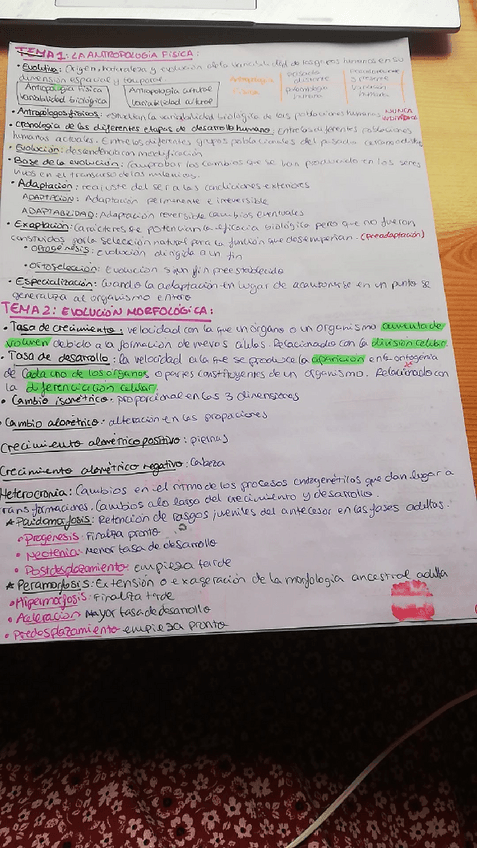 TEMA 1: LA ANTROPOLOGIA FÍSICA:
• Evolutiva: Origen, naturaleza y evolución de la variabilidad de los grupos humanos en su
dimensión espacial y temporal.
Antropología física
variabilidad biológica
Antropología cultural
variabilidad cultural
pasado
distante
Paleontología
humana
presente
Variación
humana
• Antropólogos físicos: estudian la variabilidad biológica de las poblaciones humanas NUNCA
• Cronología de las diferentes etapas de desarrollo humano: Entre las diferentes poblaciones
humanas actuales. Entre los diferentes grupos poblacionales del pasado
• Evolución: descendencia con modificación
• Base de la evolución: Comprobar los cambios que se han producido en los seres
vivos en el transcurso de los milenios.
• Adaptación: reajuste del ser a las condiciones exteriores
ADAPTACIÓN: Adaptación permanente e irreversible
ADAPTABILIDAD: Adaptación reversible cambios eventuales
• Exaptación: Carácteres que potencian la eficacia biológica pero que no fueron
construidos por la selección natural para la función que desempeñan (Preadaptación)
• Ortogénesis: evolución dirigida a un fin
• Ortoselección: Evolución sin un fin preestablecido
• Especialización: Cuando la adaptación en lugar de acantonarse en un punto se
generaliza al organismo entero
TEMA 2: EVOLUCIÓN MORFOLÓGICA:
• Tasa de crecimiento: velocidad con la que un órgano o un organismo aumenta de
volumen debido a la formación de nuevas células. Relacionado con la división celular
• Tasa de desarrollo: la velocidad a la que se produce la aparición en la ontogenia
de cada uno de los órganos o partes constituyentes de un organismo. Relacionado con
la diferenciación celular.
• Cambio isométrico: proporcional en las 3 dimensiones
• Cambio alométrico: alteración en las proporciones
Crecimiento alométrico positivo: piernas
Crecimiento alométrico negativo: Cabeza
Heterocronia: Cambios en el ritmo de los procesos ontogenéticos que dan lugar a
transformaciones. Cambios a lo largo del crecimiento y desarrollo.
★ Paidomorfosis: Retención de rasgos juveniles del antecesor en las fases adultas.
• Progenesis: Finaliza pronto
• Neotenia: Menor tasa de desarrollo
• Postdesplazamiento: empieza tarde
★ Peramorfosis: Extensión o exageración de la morfología ancestral adulta
• Hipermorfosis: Finaliza tarde
• Aceleración: Mayor tasa de desarrollo
• Predesplazamiento: empieza pronto